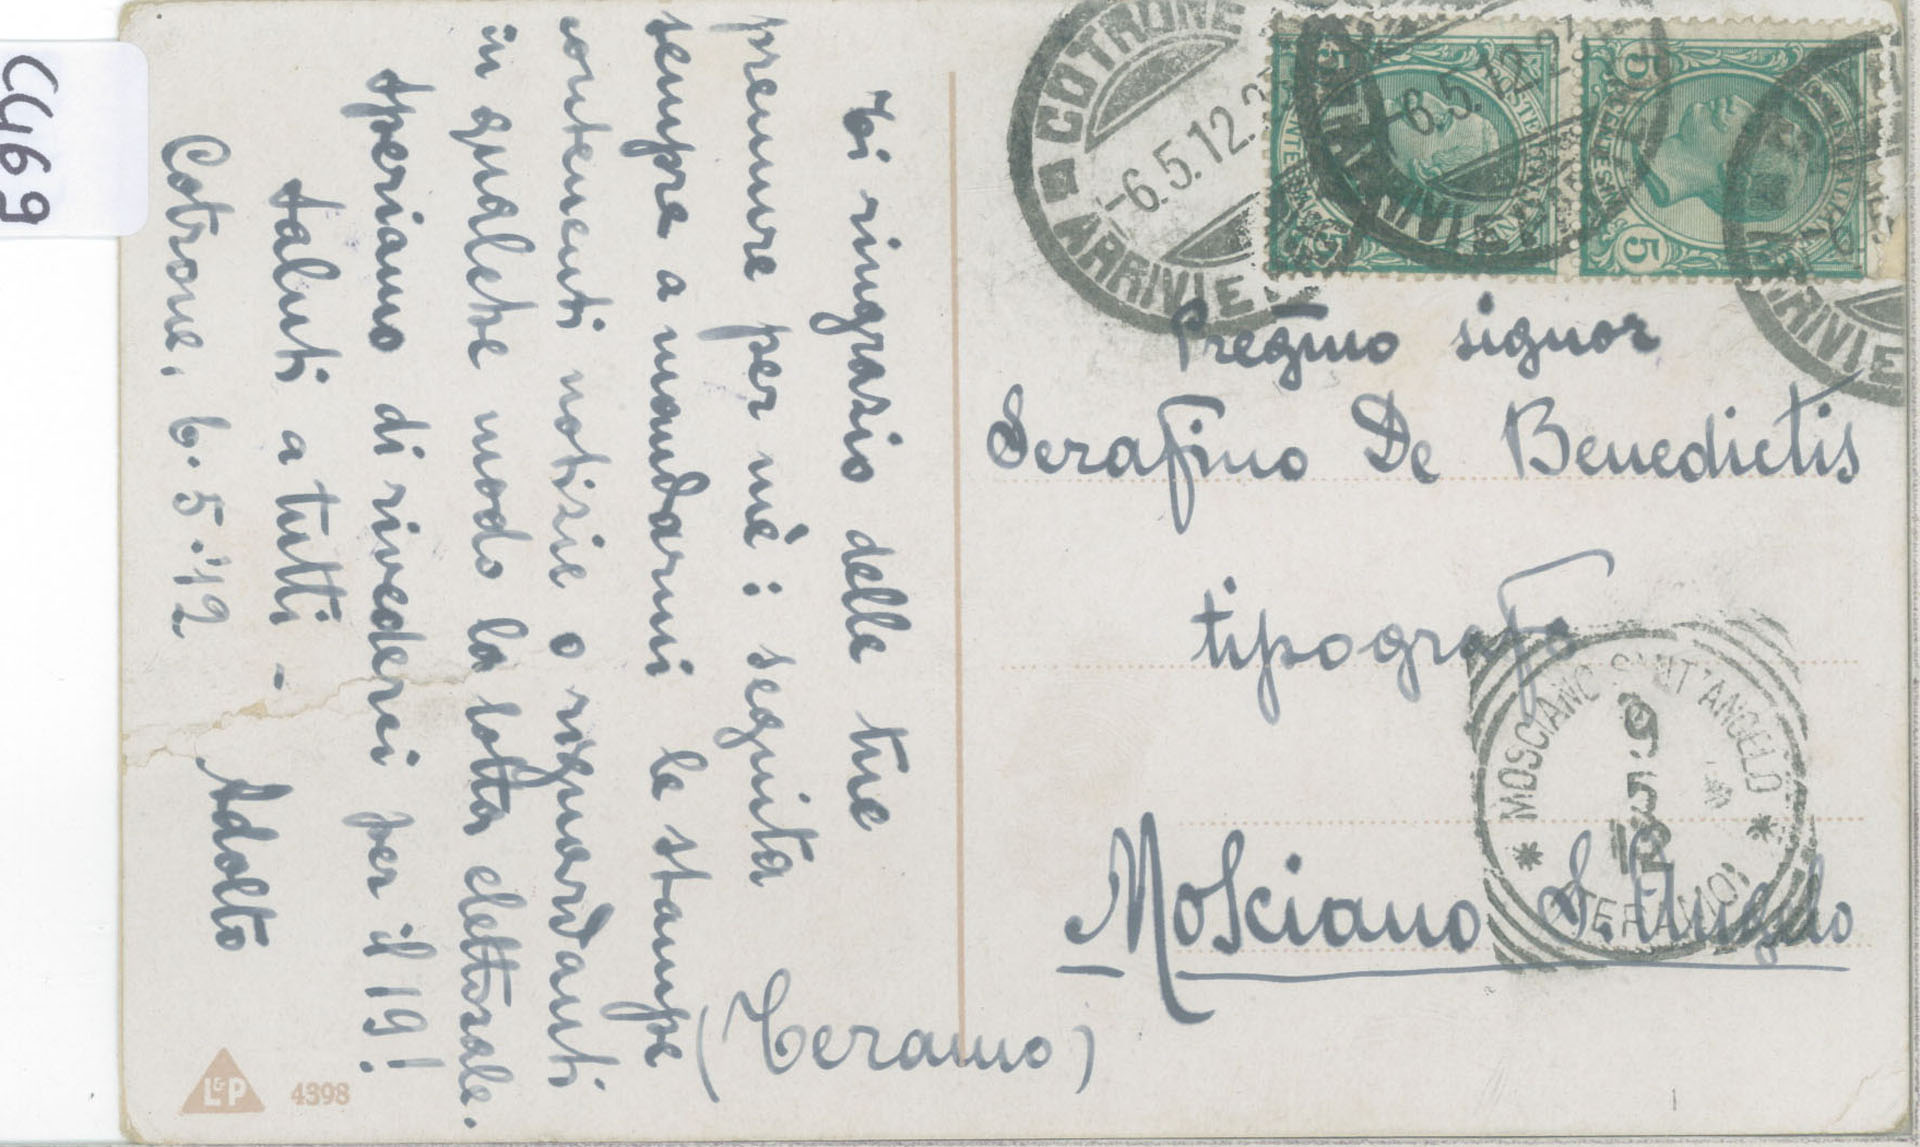 Ti ringrazio delle tue
premure per mè: seguita
sempre a mandarmi le stampe
contenenti notizie o riguardanti
in qualche modo la lotta elettorale.
Speriamo di rivederci per il 19!
Saluti a tutti -
Cotrone, 6.5.'12
Adolfo
Pregmo signor
Serafino De Benedictis
tipografo
Mosciano S. Angelo
(Teramo)
COTRONE
-6.5.12.
ARRIVI E
-6.5.12-21
ARRIVI E
ARRIVI E
POSTE
5
5
5
MOSCIANO SANT'ANGELO
9 5 12
(TERAMO)
L&P
4398
C469